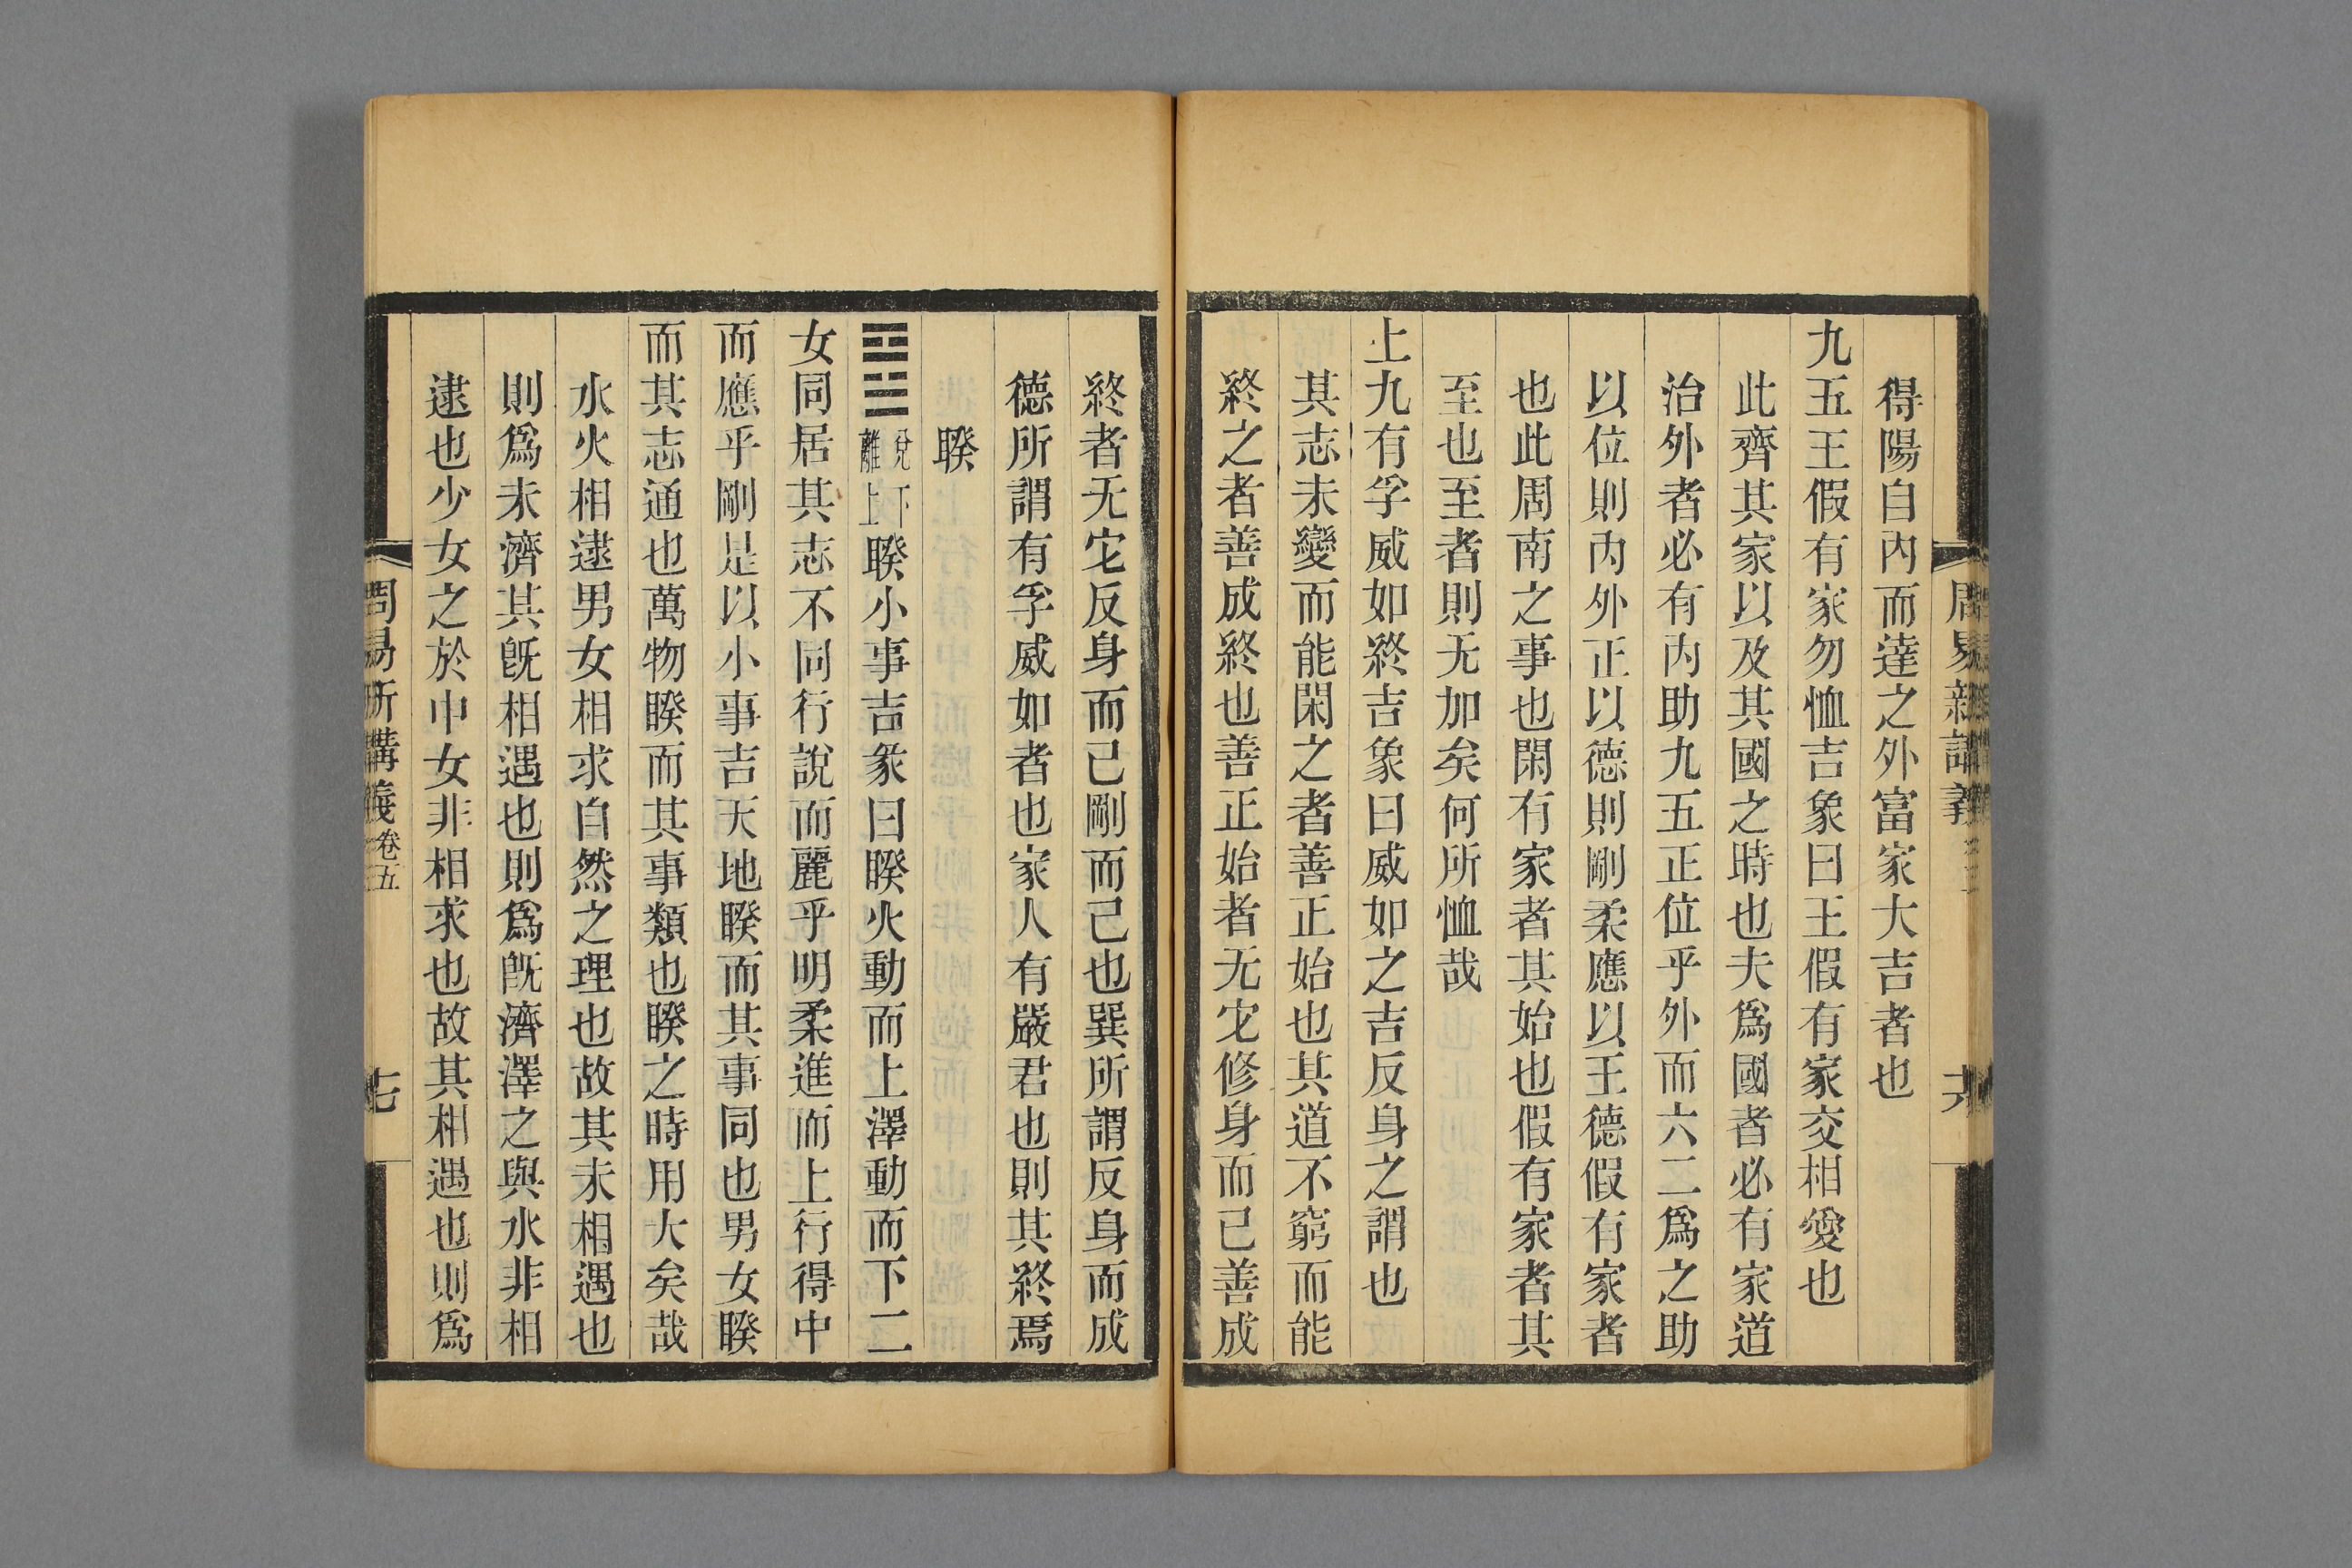 得陽自内而達之外富家大吉者也
九五王假有家勿恤吉象曰王假有家交相愛也
此齊其家以及其國之時也夫爲國者必有家道
治外者必有内助九五正位乎外而六二爲之助
以位則内外正以德則剛柔應以王德假有家者
也此周南之事也閑有家者其始也假有家者其
至也至者則无加矣何所恤哉
上九有孚威如終吉象曰威如之吉反身之謂也
其志未變而能閑之者善正始也其道不窮而能
終之者善成終也善正始者无它修身而已善成
終者无它反身而已剛而已也巽所謂反身而成
德所謂有孚威如者也家人有嚴君也則其終焉
睽
䷥兌下離上睽小事吉彖曰睽火動而上澤動而下二
女同居其志不同行說而麗乎明柔進而上行得中
而應乎剛是以小事吉天地睽而其事同也男女睽
而其志通也萬物睽而其事類也睽之時用大矣哉
水火相逮男女相求自然之理也故其未相遇也
則爲未濟其旣相遇也則爲旣濟澤之與水非相
逮也少女之於中女非相求也故其相遇也則爲
周易新講義 卷五
七